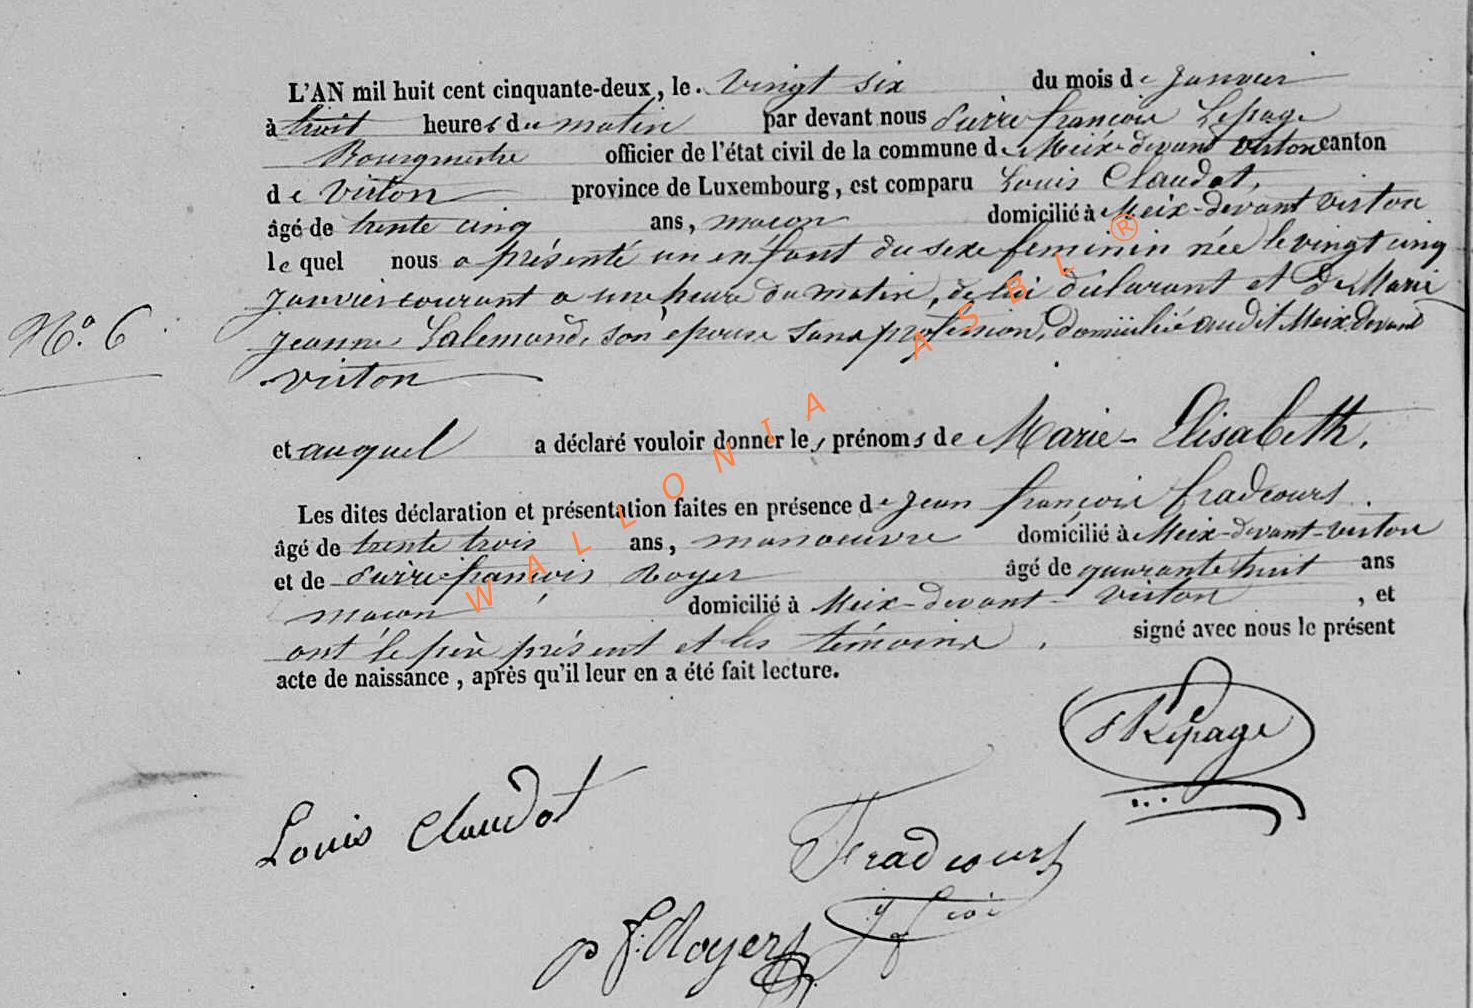 L'AN mil huit cent cinquante-deux, le vingt six du mois de Janvier
à huit heures du matin par devant nous Pierre françois Lepage
Bourgmestre officier de l'état civil de la commune de Meix-devant Virton canton
de Virton province de Luxembourg, est comparu Louis Claudot,
âgé de trente cinq ans, maçon domicilié à Meix-devant Virton
lequel nous a présenté un enfant du sexe feminin née le vingt cinq
Janvier courant a une heure du matin, de lui déclarant et de Marie
N.° 6
Jeanne Lalemand, son épouse sans profession, domiciliée audit Meix devant
virton
et auquel a déclaré vouloir donner les prénoms de Marie-Elisabeth.
Les dites déclaration et présentation faites en présence de Jean françois fradcourt.
âgé de trente trois ans, manoeuvre domicilié à Meix-devant-virton
et de Pierre-françois Royer âgé de quarante huit ans
maçon domicilié à Meix-devant-virton, et
ont le père présent et les témoins. signé avec nous le présent
acte de naissance, après qu'il leur en a été fait lecture.
Lepage
Louis Claudot
Fradcourt
j fçois
p f. Royer
WALLONIA ASBL ®